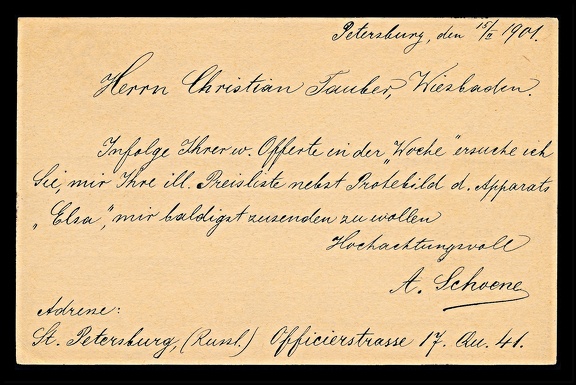 Petersburg, den 15/II 1901.
Herrn Christian Tauber, Wiesbaden.
Infolge Ihrer w. Offerte in der „Woche" ersuche ich
Sie, mir Ihre ill. Preisliste nebst Probebild d. Apparats
„Elsa", mir baldigst zusenden zu wollen
Hochachtungsvoll
A. Schoene
Adresse:
St. Petersburg, (Russl.) Officierstrasse 17. Qu. 41.